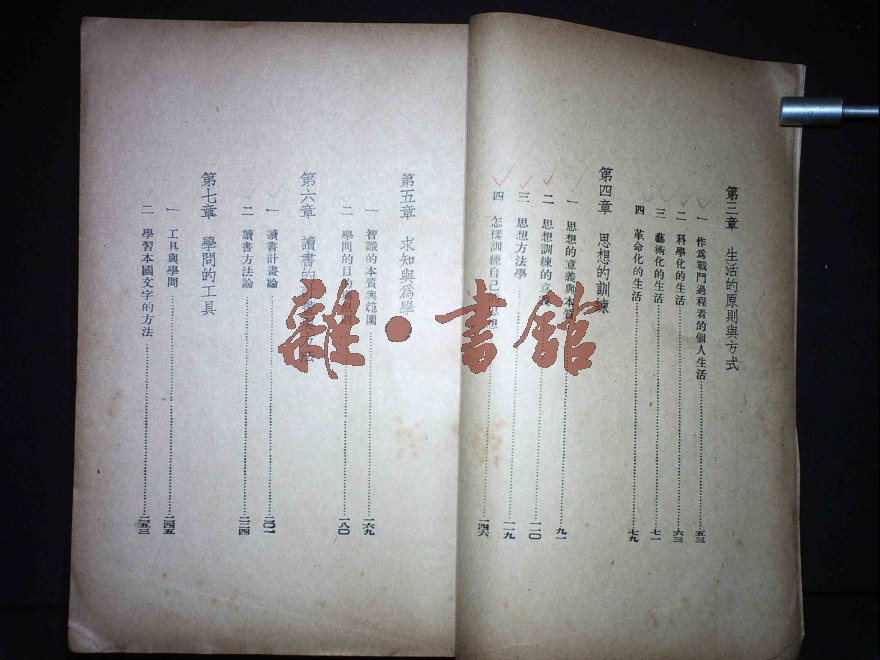 第三章　生活的原則與方式
一　作爲戰鬥過程看的個人生活……五三
二　科學化的生活……六三
三　藝術化的生活……七一
四　革命化的生活……七九
第四章　思想的訓練
一　思想的意義與本質……九一
二　思想訓練的意義……一一〇
三　思想方法學……一一九
四　怎樣訓練自己　思想……一四六
第五章　求知與爲學
一　智識的本質與範圍……一六九
二　學問的目的……一八〇
第六章　讀書的　　　法
一　讀書計畫論……二〇一
二　讀書方法論……二二四
第七章　學問的工具
一　工具與學問……二四五
二　學習本國文字的方法……二五三
雜·書館